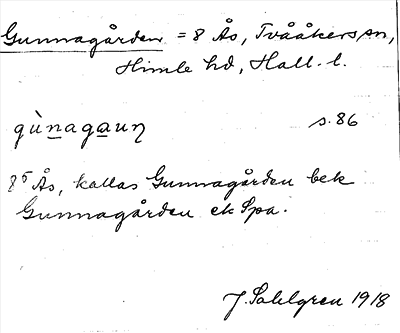 Gunnagården = 8 Ås, Tvååkers sn,
Himle hd, Hall. l.
gùnagauɳ s. 86
8⁵ Ås, kallas Gunnagården bek
Gunnagården ek Spa.
J. Sahlgren 1918